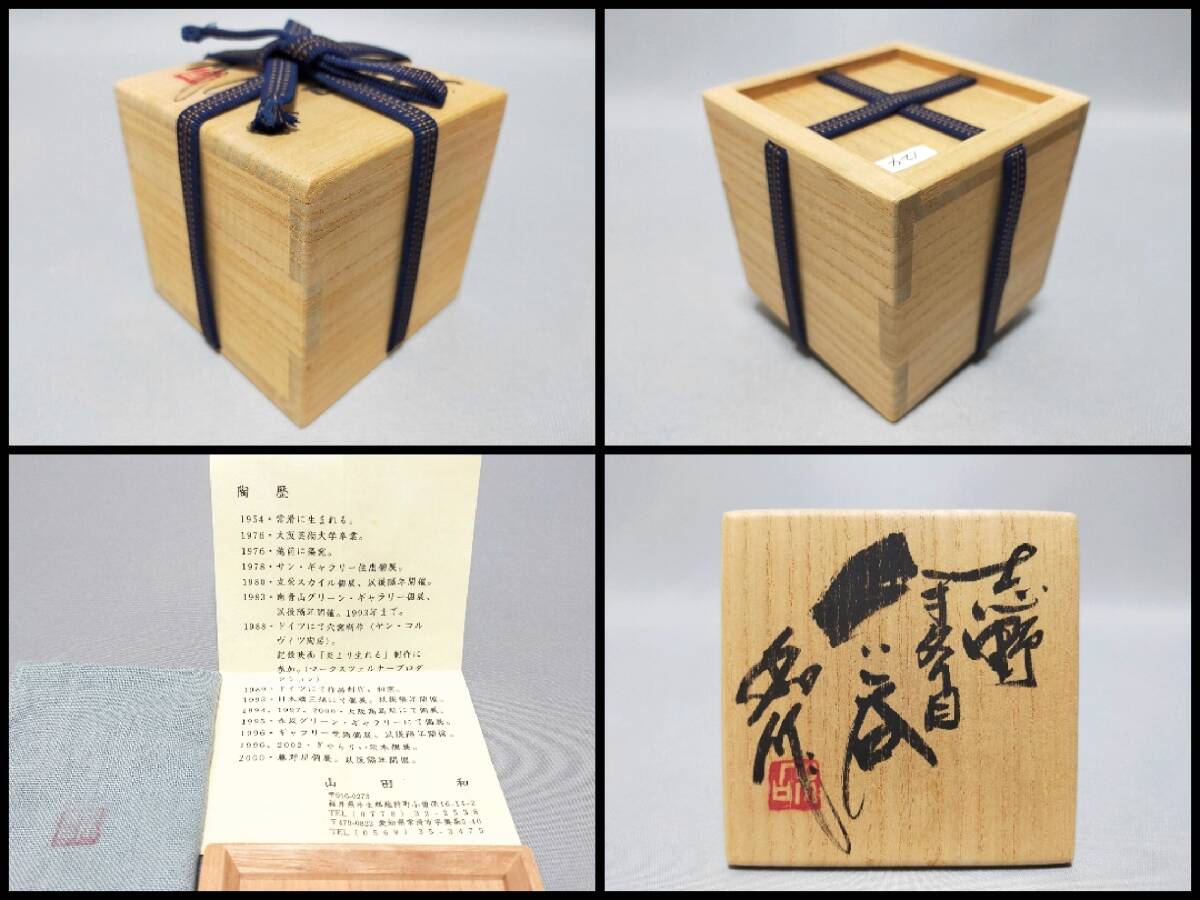 陶 歴
1954・常滑に生まれる。
1976・大阪芸術大学卒業。
1976・越前に築窯。
1978・サン・ギャラリー住恵個展。
1980・立栄スカイル個展、以後隔年開催。
1983・南青山グリーン・ギャラリー個展、
以後隔年開催。1993年まで。
1988・ドイツにて穴窯制作(ヤン・コル
ヴィツ陶房)。
記録映画「炎より生れる」制作に
参加。(マークスツェルナープロダ
クション)
1989・ドイツにて作品制作、
1993・日本橋三越にて個展。以後隔年開催。
1994、1997、2000・大阪高島屋にて個展。
1995・赤坂グリーン・ギャラリーにて個展。
1996・ギャラリー 個展、以後隔年開催。
1996、2002・ぎゃらりい 個展。
2000・藤野屋個展。以後隔年開催。
山 田 和
〒916-0273
福井県丹生郡越前町小曽原16-14-2
TEL(0778)32-2538
〒479-0822 愛知県常滑市
TEL(0569)35-3475
志野
茶碗
和